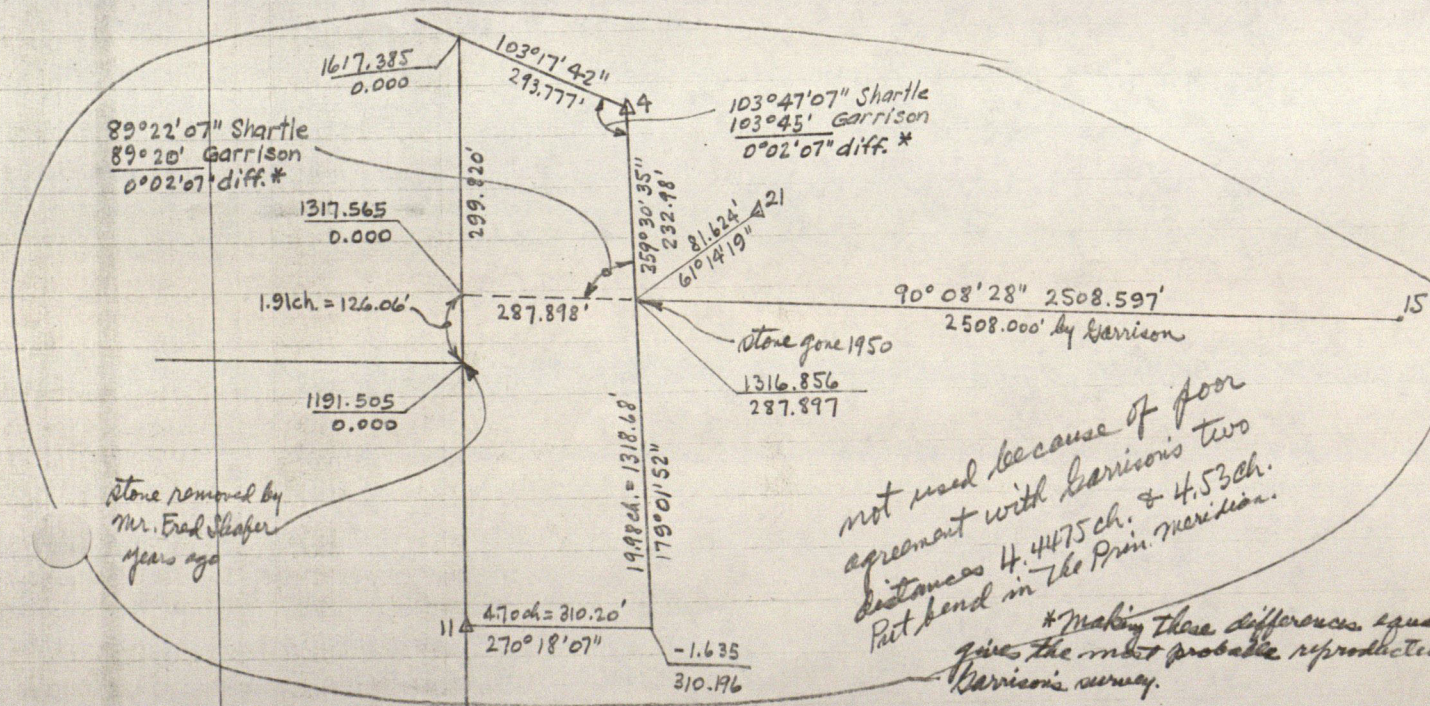 1617.385
0.000
103°17'42"
293.777'
4
103°47'07" Shartle
103°45' Garrison
0°02'07" diff. *
89°22'07" Shartle
89°20' Garrison
0°02'07" diff. *
299.820'
359°30'35"
232.98'
1317.565
0.000
81.624'
61°14'19"
21
1.91ch. = 126.06'
287.898'
90°08'28" 2508.597'
2508.000' by Garrison
15
stone gone 1950
1316.856
287.897
1191.505
0.000
19.98ch. = 1318.68'
179°01'52"
stone removed by
Mr. Fred
years ago
not used because of poor
agreement with Garrison's two
distances 4.4475ch. & 4.53ch.
Put bend in the Prin. Meridian.
11
4.70ch = 310.20'
270°18'07"
-1.635
310.196
*Making these differences equa
gives the most probable
Garrison's survey.